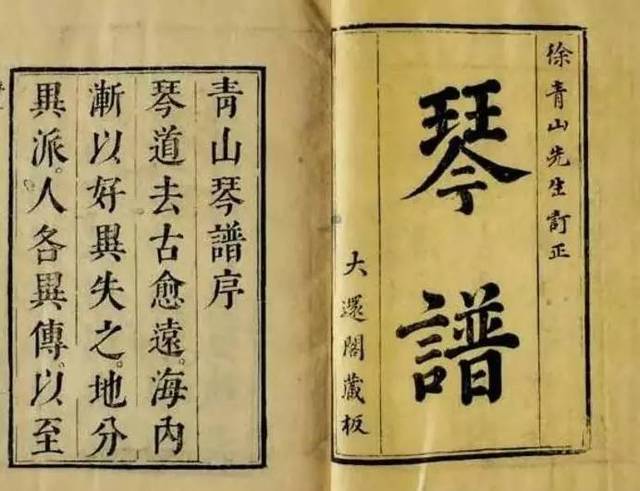 徐青山先生訂正
琴譜
大還閣藏板
青山琴譜序
琴道去古愈遠。海內
漸以好異失之。地分
異派。人各異傳。以至